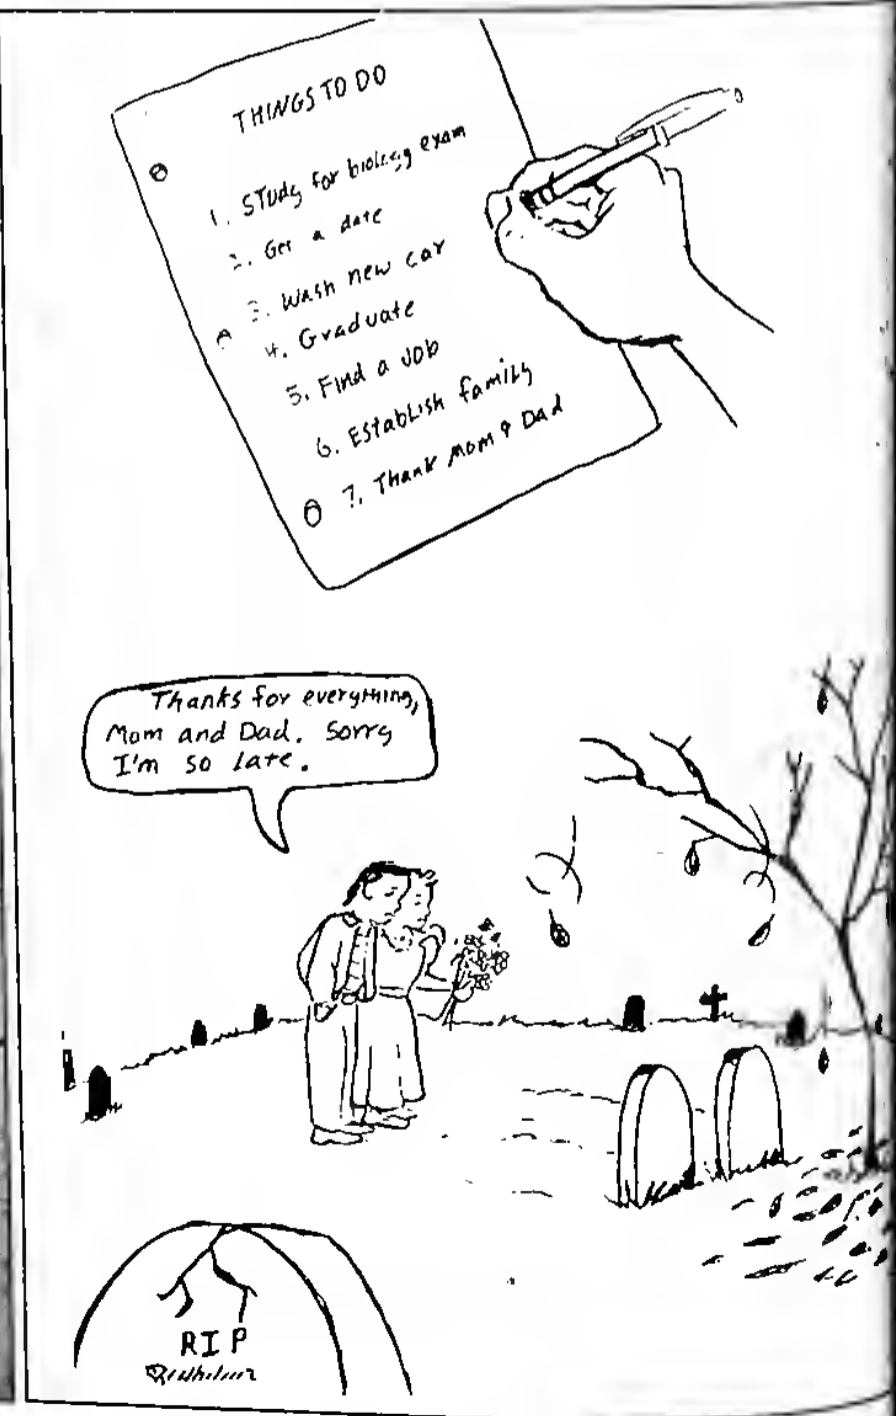 THINGS TO DO
1. Study for biology exam
2. Get a date
3. Wash new car
4. Graduate
5. Find a job
6. Establish family
7. Thank Mom & Dad
Thanks for everything,
Mom and Dad. Sorry
I'm so late.
RIP